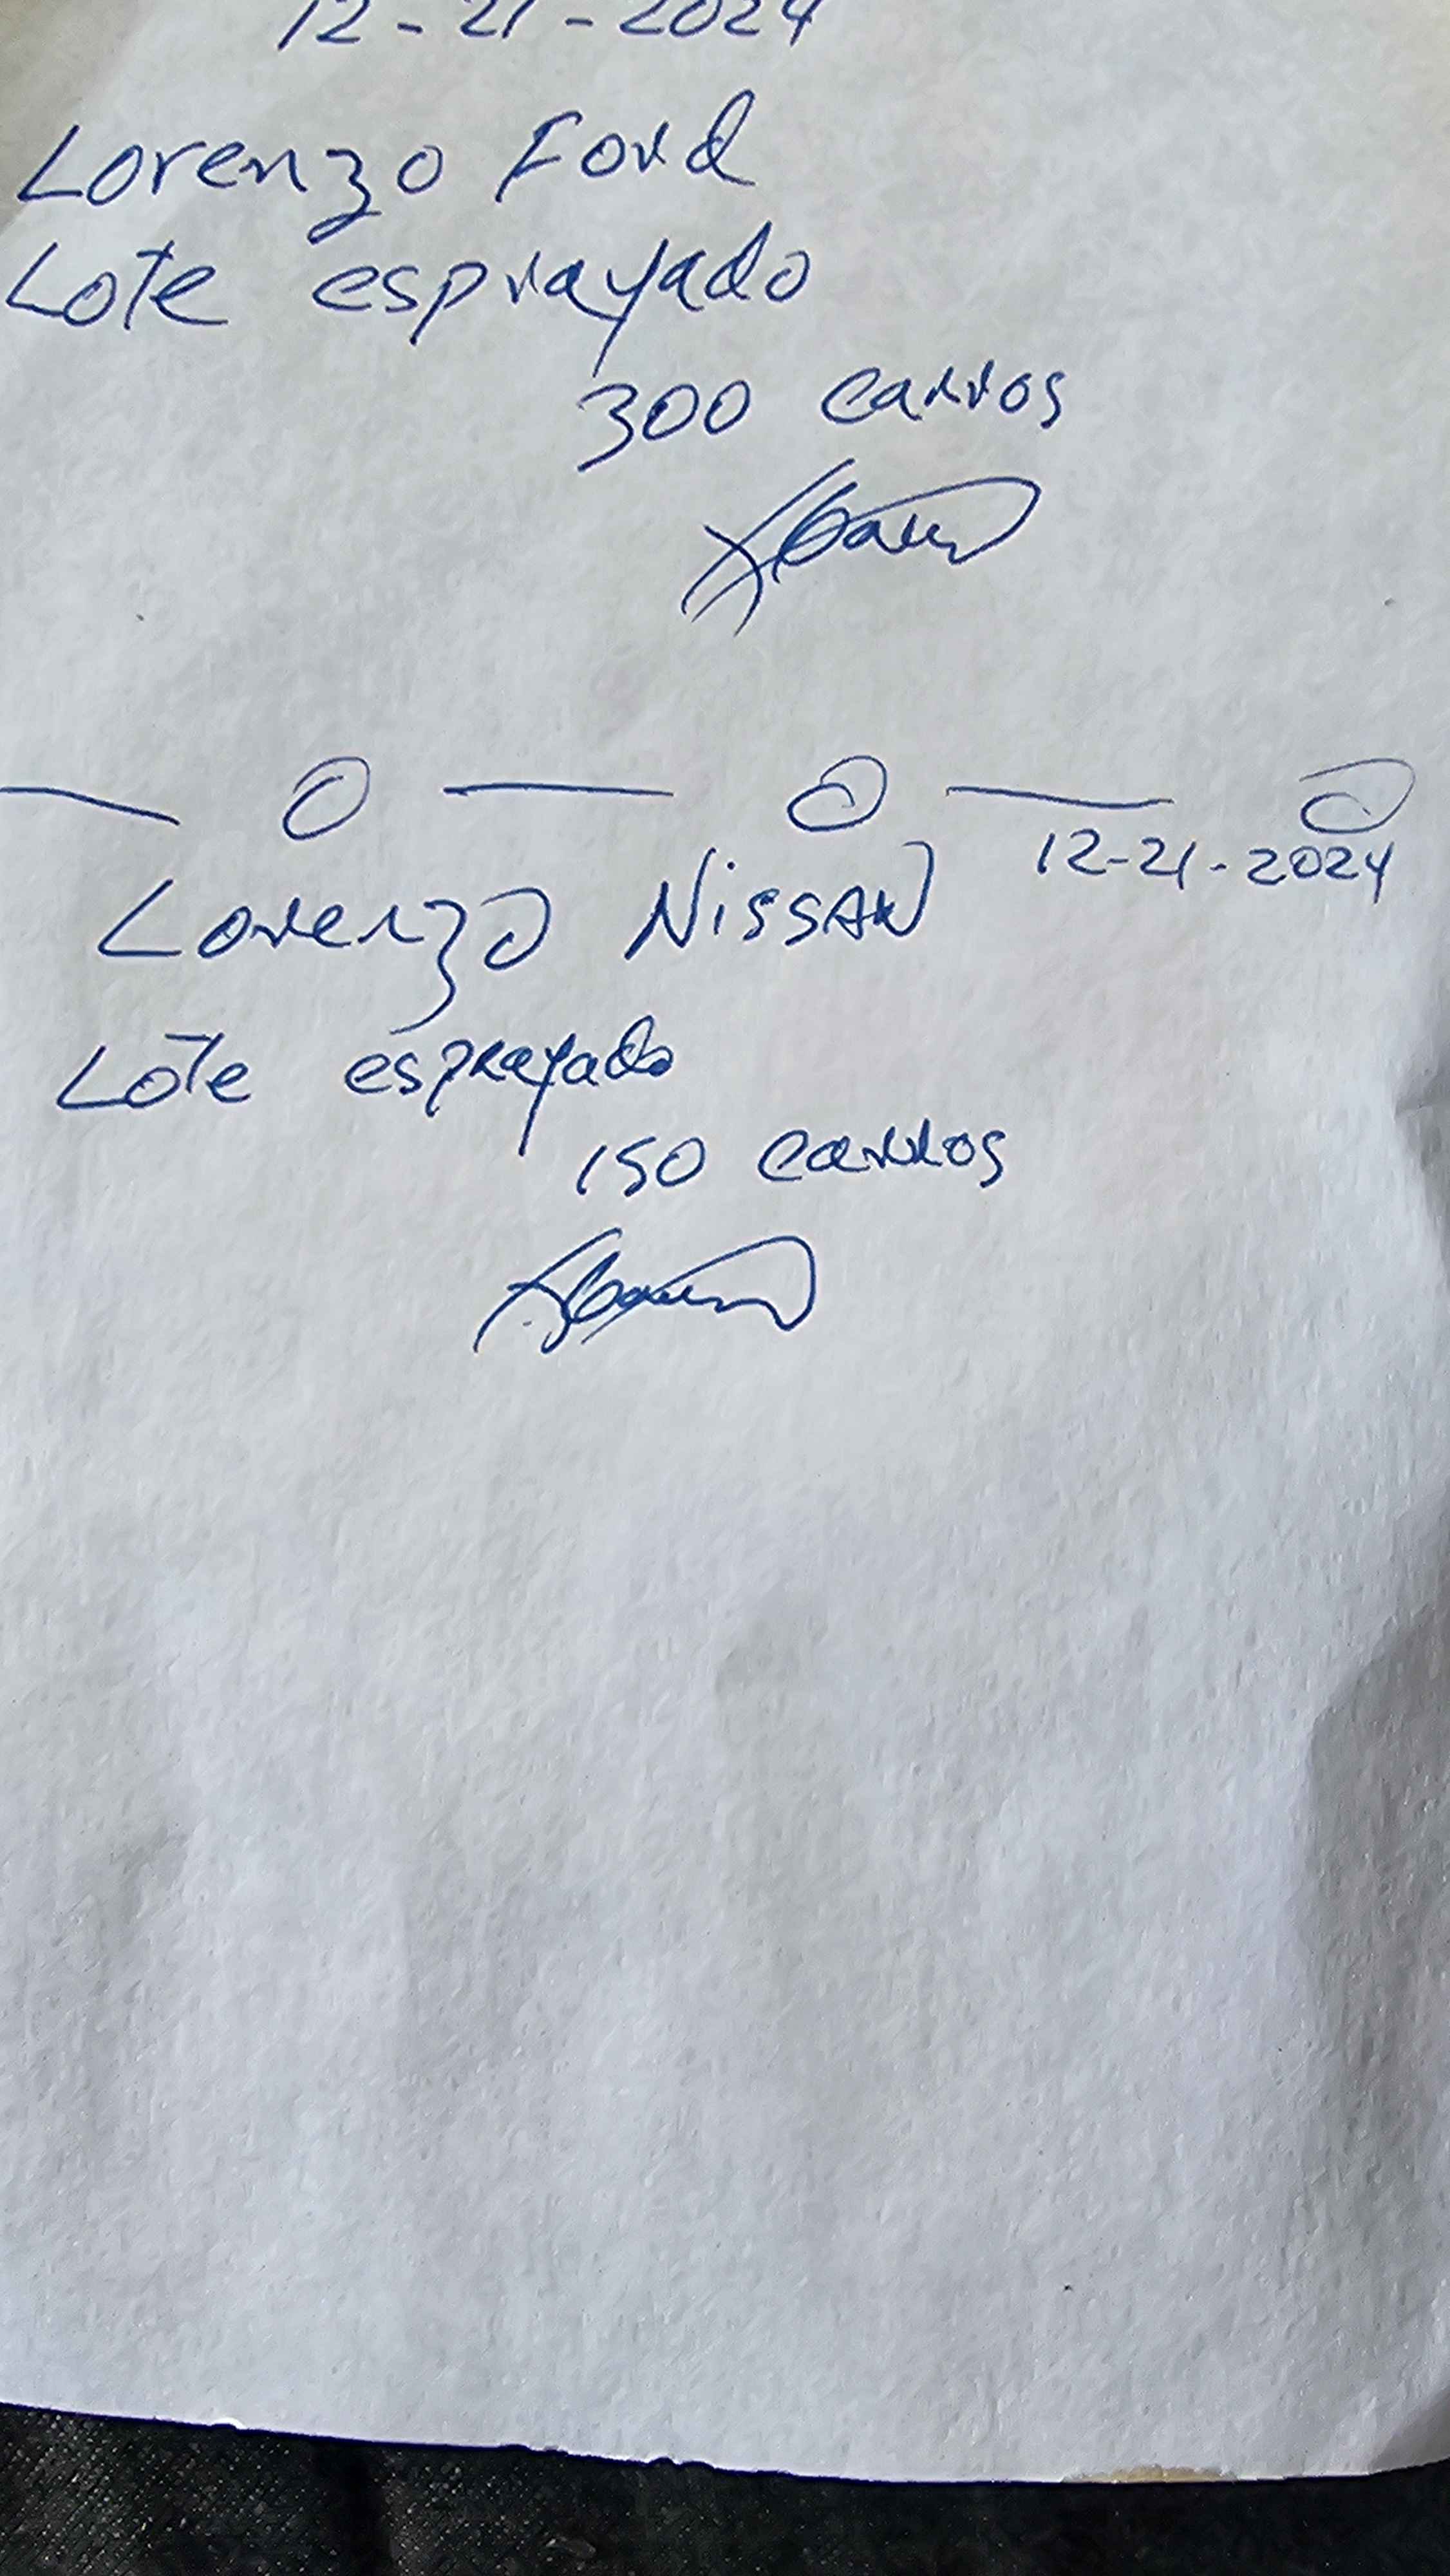 12-21-2024
Lorenzo Ford
Lote esprayado
300 carros
12-21-2024
Lorenzo Nissan
Lote esprayado
150 carros